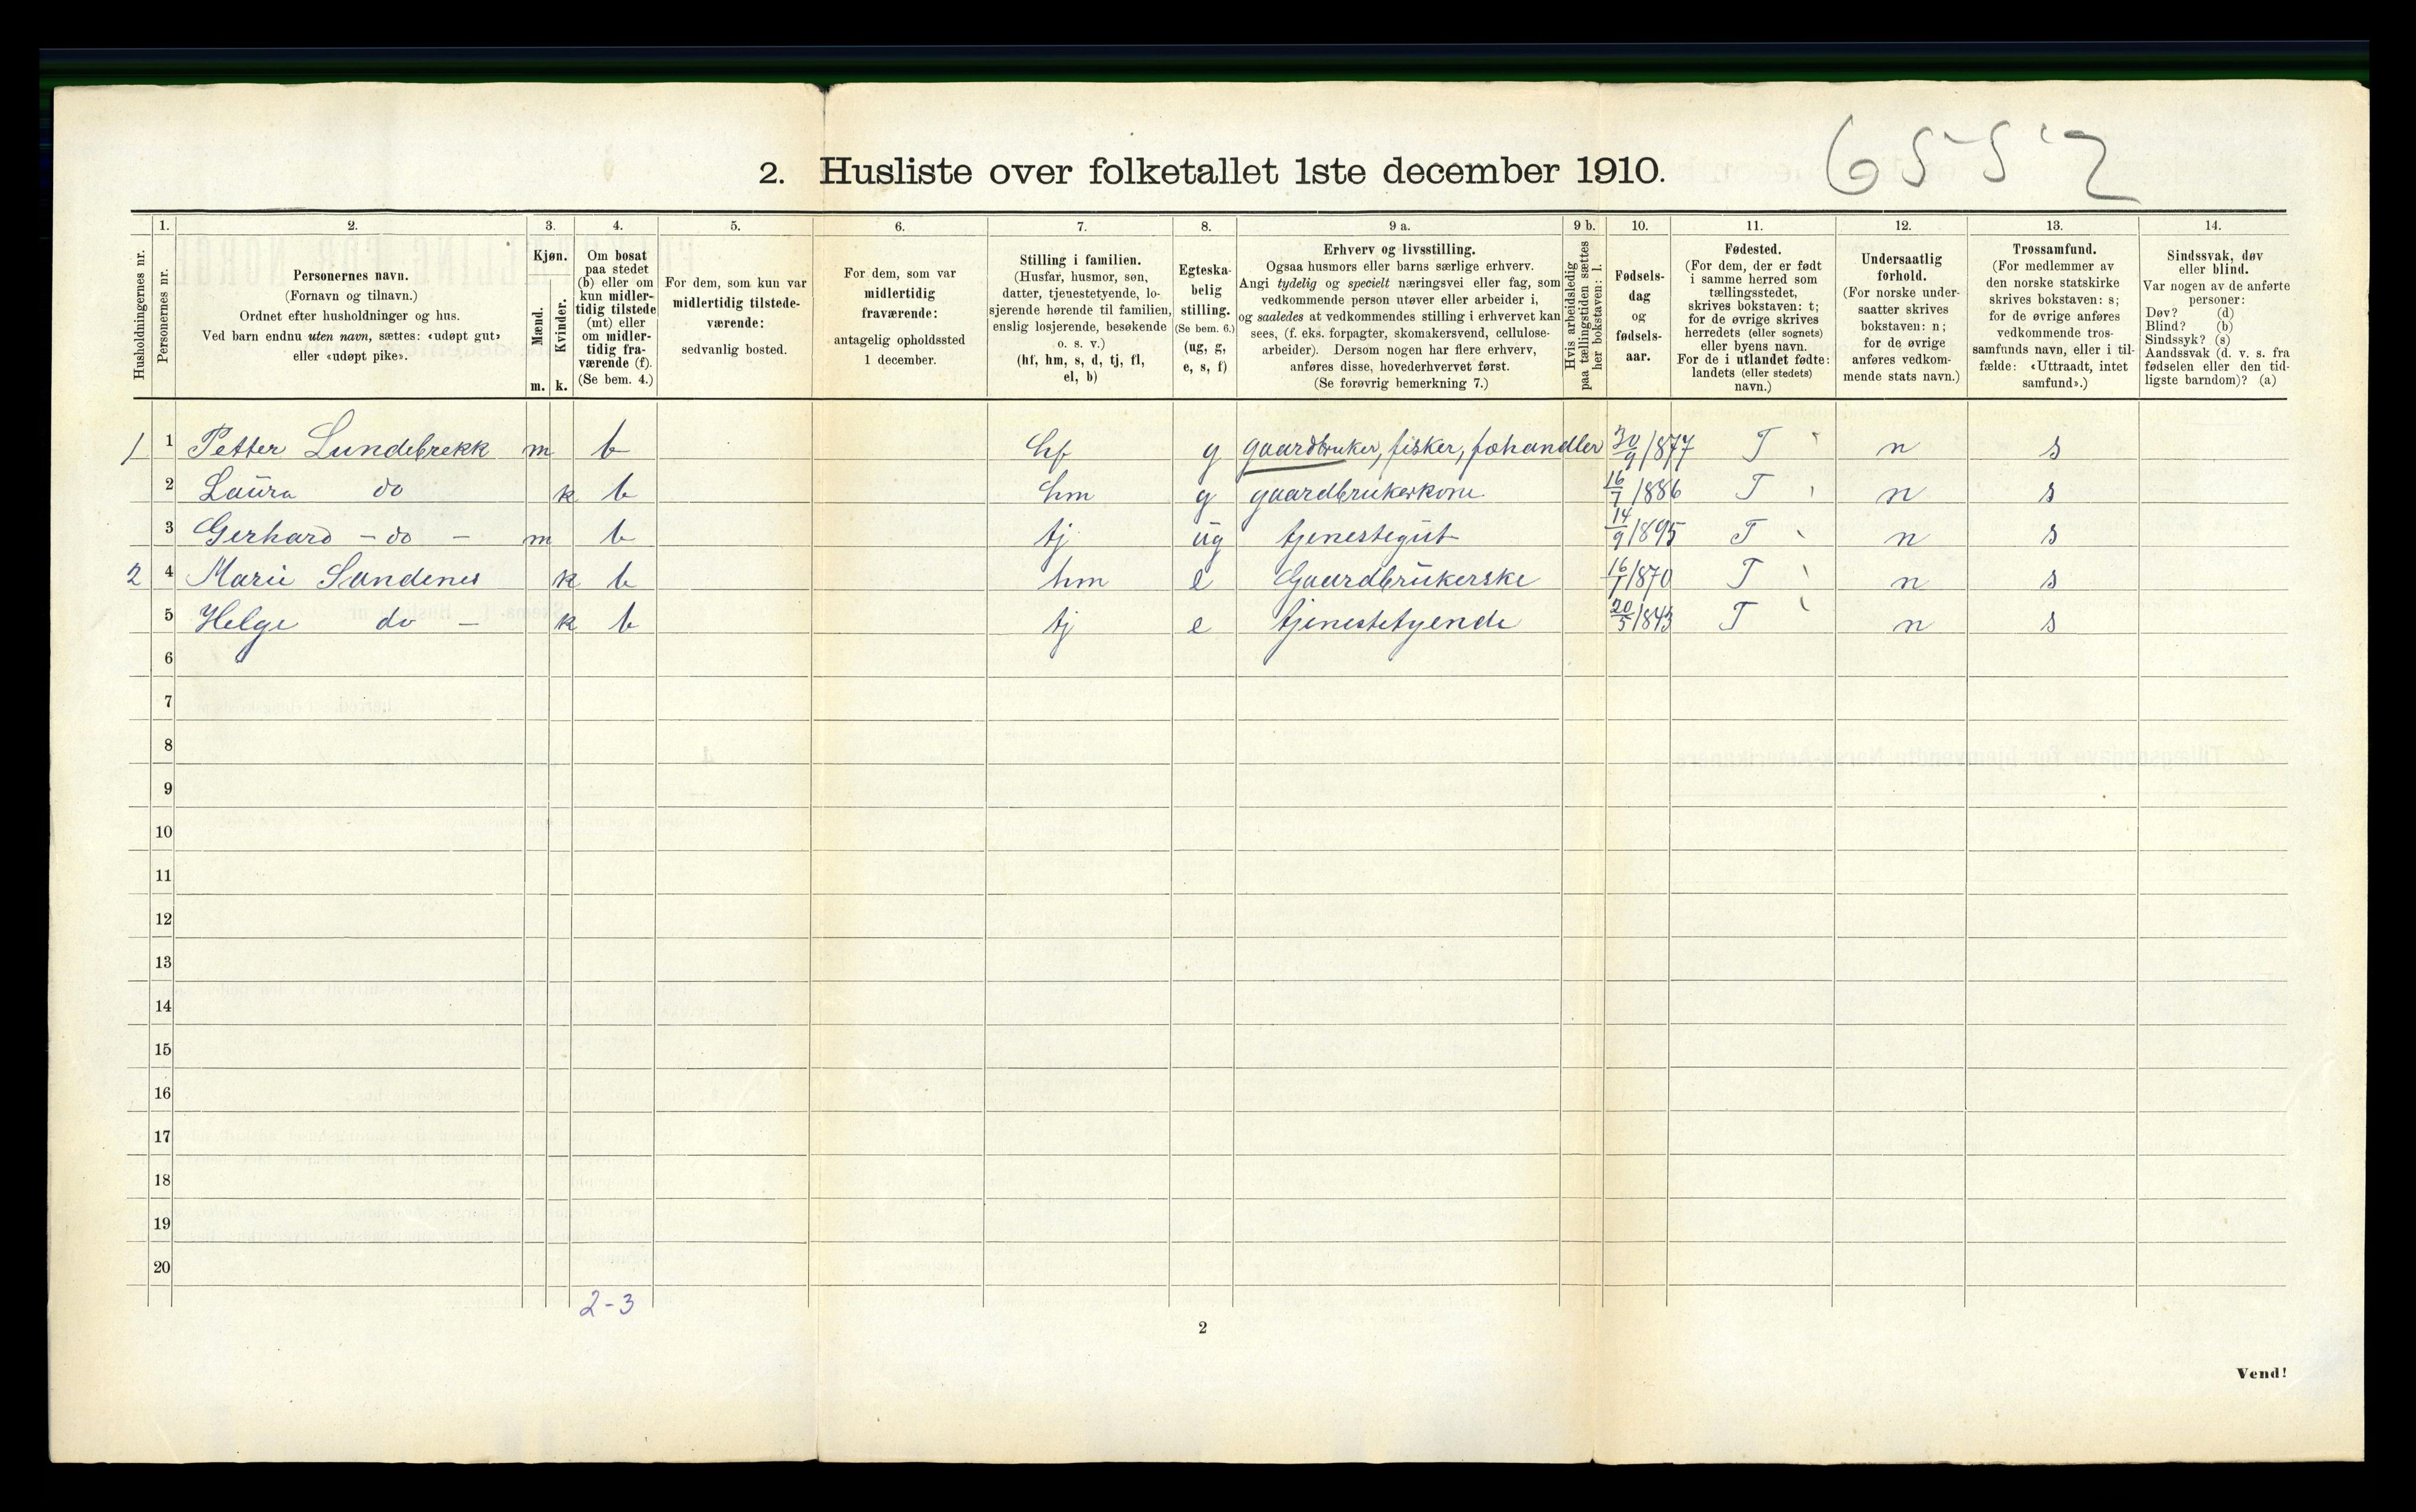 2. Husliste over folketallet 1ste december 1910.
6552
Husholdningernes nr.
1.
Personernes nr.
2.
Personernes navn.
(Fornavn og tilnavn.)
Ordnet efter husholdninger og hus.
Ved barn endnu uten navn, sættes: «udøpt gut»
eller «udøpt pike».
3.
Kjøn.
Mænd.
m.
Kvinder.
k.
4.
Om bosat
paa stedet
(b) eller om
kun midler-
tidig tilstede
(mt) eller
om midler-
tidig fra-
værende (f).
(Se bem. 4.)
5.
For dem, som kun var
midlertidig tilstede-
værende:
sedvanlig bosted.
6.
For dem, som var
midlertidig
fraværende:
antagelig opholdssted
1 december.
7.
Stilling i familien.
(Husfar, husmor, søn,
datter, tjenestetyende, lo-
sjerende hørende til familien,
enslig losjerende, besøkende
o. s. v.)
(hf, hm, s, d, tj, fl,
el, b)
8.
Egteska-
belig
stilling.
(Se bem. 6.)
(ug, g,
e, s, f)
9 a.
Erhverv og livsstilling.
Ogsaa husmors eller barns særlige erhverv.
Angi tydelig og specielt næringsvei eller fag, som
vedkommende person utøver eller arbeider i,
og saaledes at vedkommendes stilling i erhvervet kan
sees, (f. eks. forpagter, skomakersvend, cellulose-
arbeider). Dersom nogen har flere erhverv,
anføres disse, hovederhvervet først.
(Se forøvrig bemerkning 7.)
9 b.
Hvis arbeidsledig
paa tællingstiden sættes
her bokstaven: l.
10.
Fødsels-
dag
og
fødsels-
aar.
11.
Fødested.
(For dem, der er født
i samme herred som
tællingsstedet,
skrives bokstaven: t;
for de øvrige skrives
herredets (eller sognets)
eller byens navn.
For de i utlandet fødte:
landets (eller stedets)
navn.)
12.
Undersaatlig
forhold.
(For norske under-
saatter skrives
bokstaven: n;
for de øvrige
anføres vedkom-
mende stats navn.)
13.
Trossamfund.
(For medlemmer av
den norske statskirke
skrives bokstaven: s;
for de øvrige anføres
vedkommende tros-
samfunds navn, eller i til-
fælde: «Uttraadt, intet
samfund».)
14.
Sindssvak, døv
eller blind.
Var nogen av de anførte
personer:
Døv? (d)
Blind? (b)
Sindssyk? (s)
Aandssvak (d. v. s. fra
fødselen eller den tid-
ligste barndom)? (a)
1 1 Petter Lundebrekk m b hf g gaardbruker, fisker, fæhandler 30/9 1877 T n s
2 Laura do k b hm g gaardbrukerkone 16/7 1886 T n s
3 Gerhard - do - m b tj ug tjenestegut 14/9 1895 T n s
2 4 Marie Sandenes k b hm e Gaardbrukerske 16/1 1870 T n s
5 Helge do - k b tj e tjenestetyende 20/5 1843 T n s
6
7
8
9
10
11
12
13
14
15
16
17
18
19
20
2-3
2
Vend!